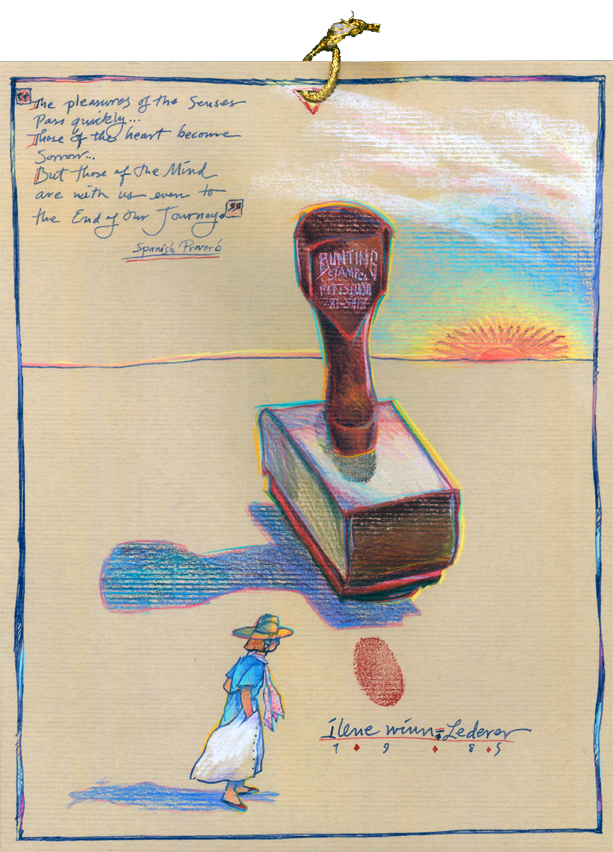 The pleasures of the Senses
Pass quickly...
Those of the heart become
Sorrow...
But those of the Mind
are with us even to
the End of Our Journey.
Spanish Proverb
BUNTING
STAMP Co.
PITTSBURGH
281-5417
ilene winn-Lederer
1 9 8 5